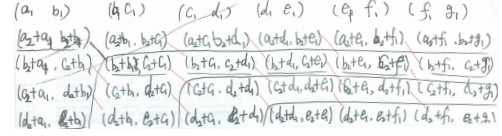 (a₁ b₁) (b₁ c₁) (c₁ d₁) (d₁ e₁) (e₁ f₁) (f₁ g₁)
(a₂+a₁ b₂+b₁) (a₂+b₁, b₂+c₁) (a₂+c₁, b₂+d₁) (a₂+d₁, b₂+e₁) (a₂+e₁, b₂+f₁) (a₂+f₁, b₂+g₁)
(b₂+a₁, c₂+b₁) (b₂+b₁, c₂+c₁) (b₂+c₁, c₂+d₁) (b₂+d₁, c₂+e₁) (b₂+e₁, c₂+f₁) (b₂+f₁, c₂+g₁)
(c₂+a₁, d₂+b₁) (c₂+b₁, d₂+c₁) (c₂+c₁, d₂+d₁) (c₂+d₁, d₂+e₁) (c₂+e₁, d₂+f₁) (c₂+f₁, d₂+g₁)
(d₂+a₁, e₂+b₁) (d₂+b₁, e₂+c₁) (d₂+c₁, e₂+d₁) (d₂+d₁, e₂+e₁) (d₂+e₁, e₂+f₁) (d₂+f₁, e₂+g₁)